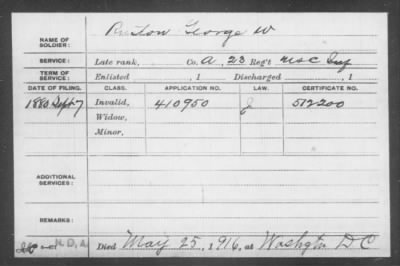 NAME OF SOLDIER: George W
SERVICE: Late rank, Co. A, 23 Reg't Inf
TERM OF SERVICE: Enlisted , 1 Discharged , 1
DATE OF FILING. CLASS. APPLICATION NO. LAW. CERTIFICATE NO.
1880 Sept 7 Invalid, 410950 512200
Widow,
Minor,
ADDITIONAL SERVICES:
REMARKS:
N.D.A. Died May 25, 1916, at Washgtn D C